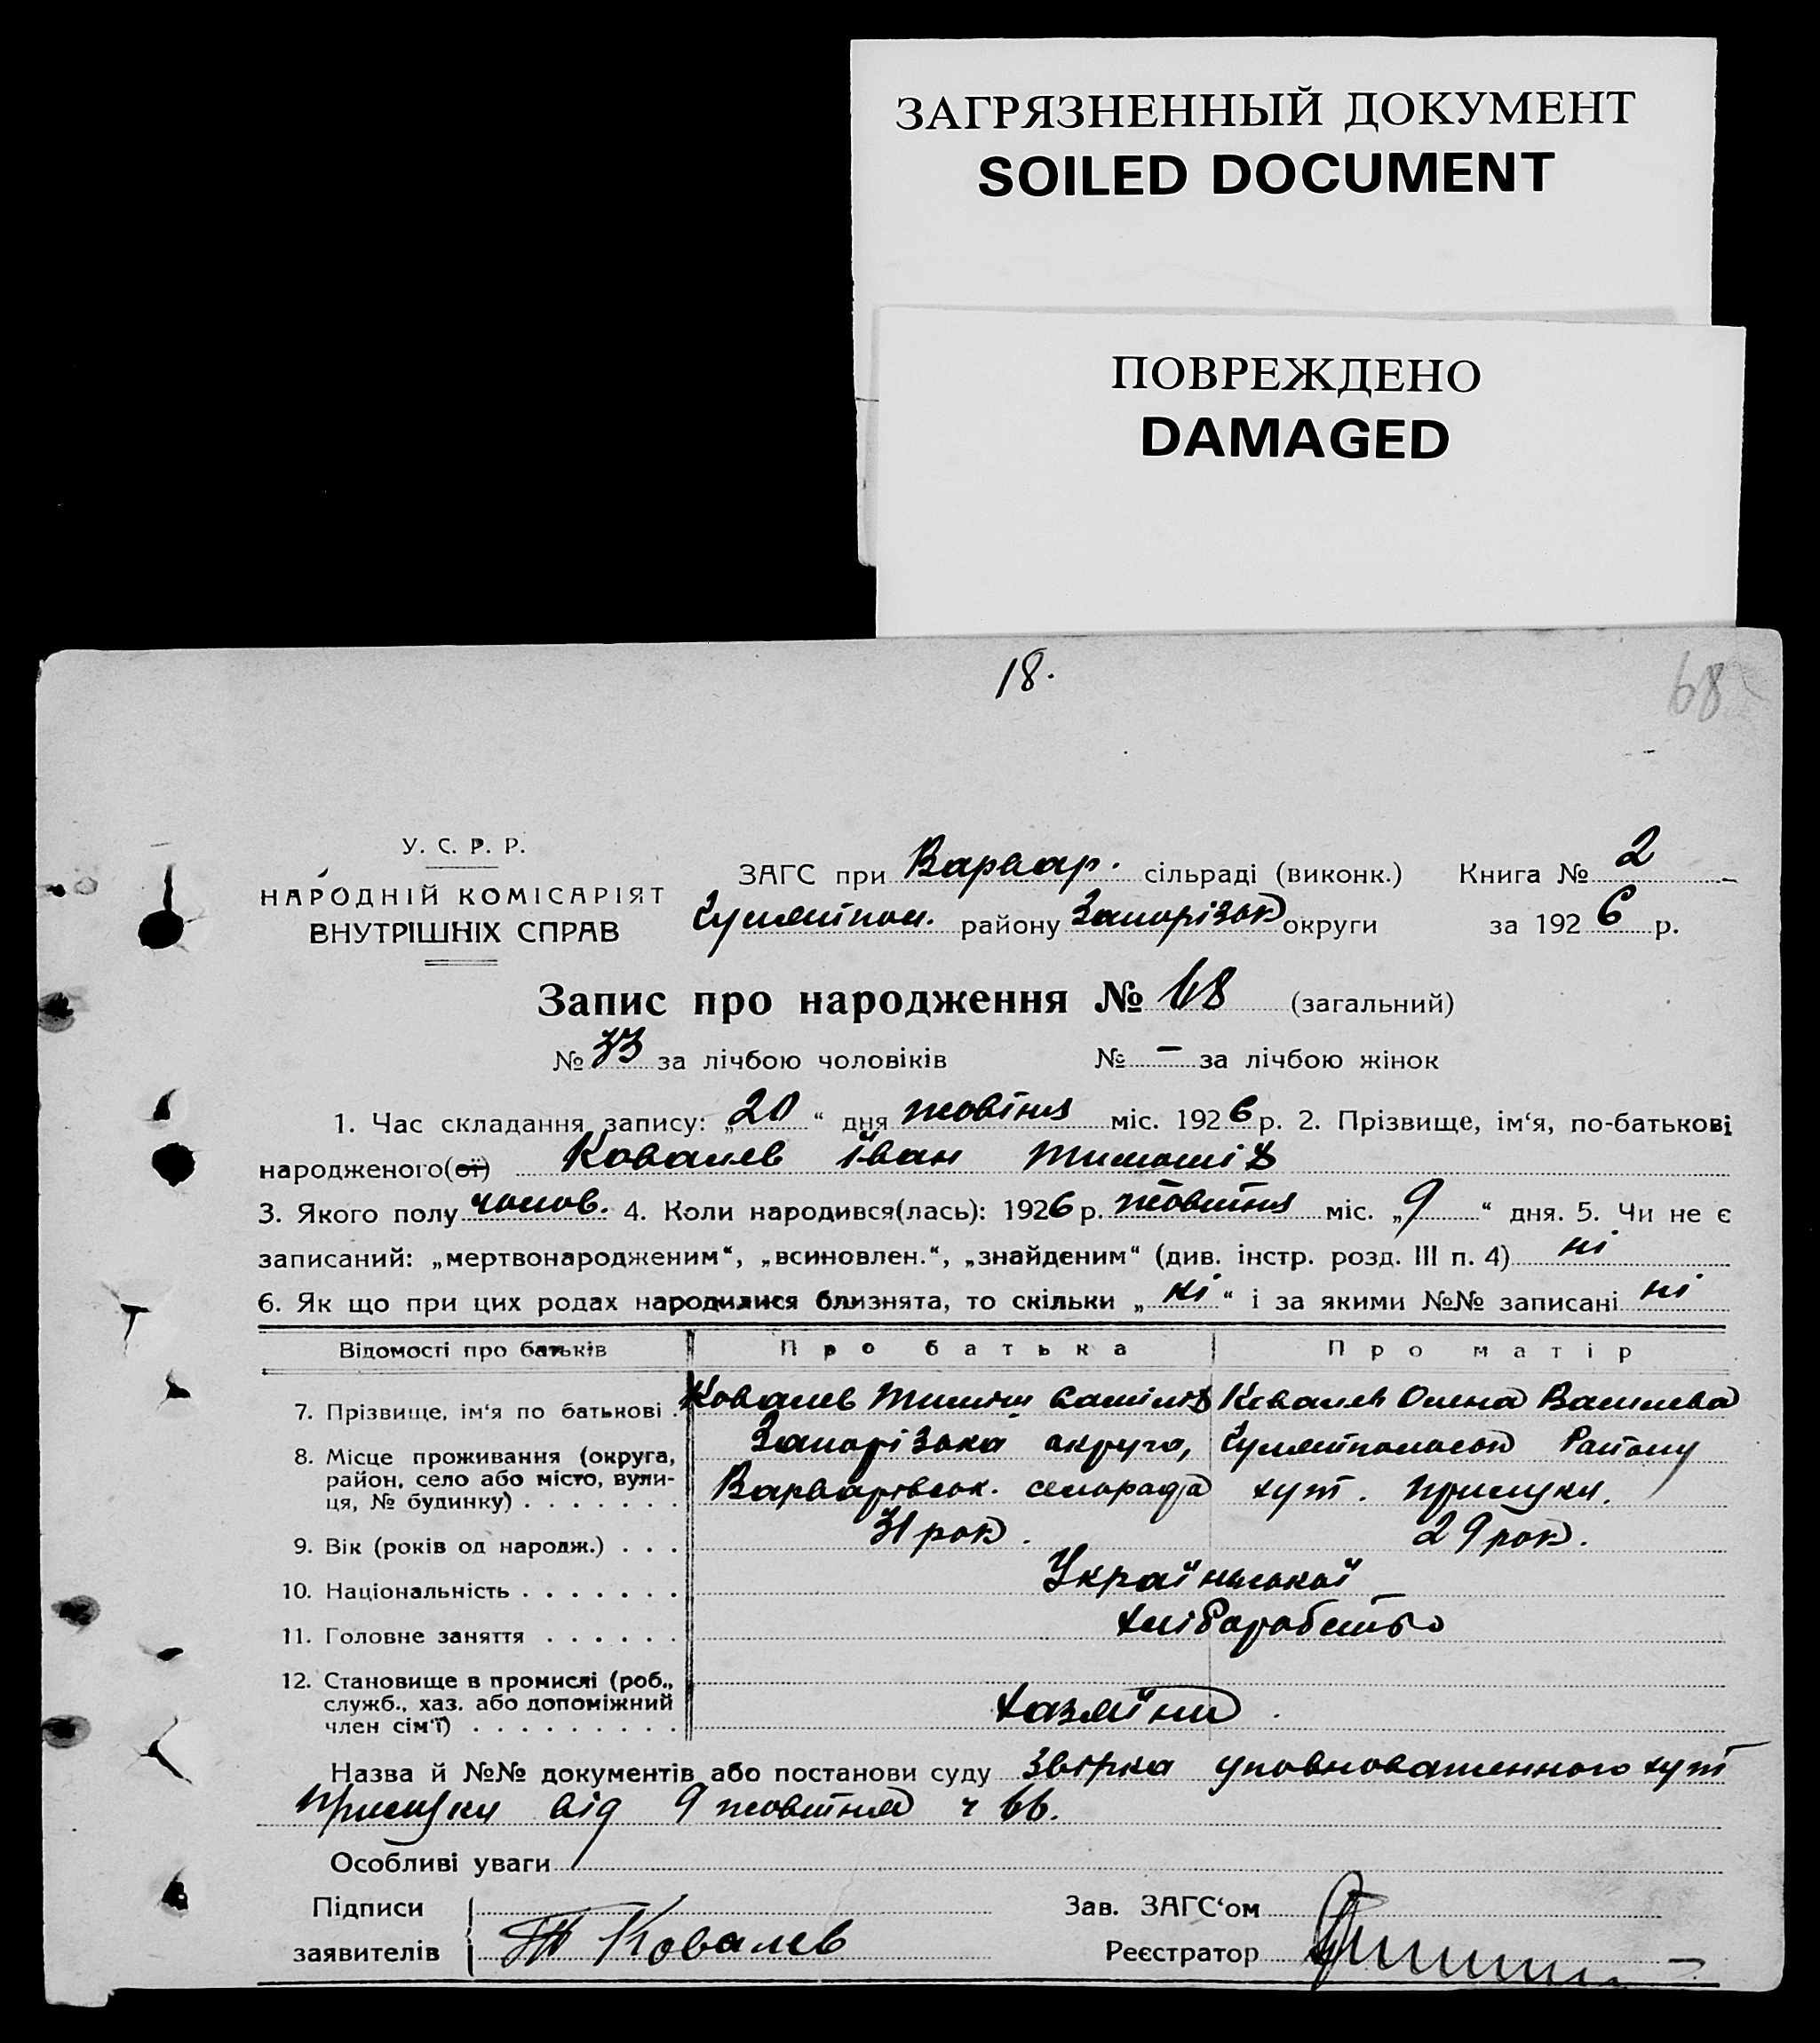 ЗАГРЯЗНЕННЫЙ ДОКУМЕНТ
SOILED DOCUMENT
ПОВРЕЖДЕНО
DAMAGED
18.
68
У. С. Р. Р.
НАРОДНІЙ КОМІСАРІЯТ
ВНУТРІШНІХ СПРАВ
ЗАГС при Варвар. сільраді (виконк.) Книга № 2
Гуляйпол. району Запорізьк округи за 1926 р.
Запис про народження № 68 (загальний)
№ 33 за лічбою чоловіків № – за лічбою жінок
1. Час складання запису: „20“ дня жовтня міс. 1926 р. 2. Прізвище, ім'я, по-батькові
народженого(ої) Ковалев Іван Тимошів
3. Якого полу чолов. 4. Коли народився(лась): 1926 р. жовтня міс. „9“ дня. 5. Чи не є
записаний: „мертвонародженим“, „всиновлен.“, „знайденим“ (див. інстр. розд. III п. 4) ні
6. Як що при цих родах народилися близнята, то скільки „ні“ і за якими №№ записані ні
Відомості про батьків Про батька Про матір
7. Прізвище, ім'я по батькові . Ковалев Тиміш Ковалев Олена Василева
8. Місце проживання (округа, район, село або місто, вулиця, № будинку) . . . . . . . Запорізька округа, Гуляйпольськ Району
Варварівськ. сельрада хут. Прилуки.
9. Вік (років од народж.) . . . 31 рок. 29 рок.
10. Національність . . . . . . . Української
11. Головне заняття . . . . . . хліборобство
12. Становище в промислі (роб., служб., хаз. або допоміжний член сім'ї) . . . . . . . . . хазяїни
Назва й №№ документів або постанови суду звірка уповноваженного хут
Прилуки від 9 жовтня ч 66.
Особливі уваги
Підписи
заявителів Т Ковалев
Зав. ЗАГС'ом
Реєстратор